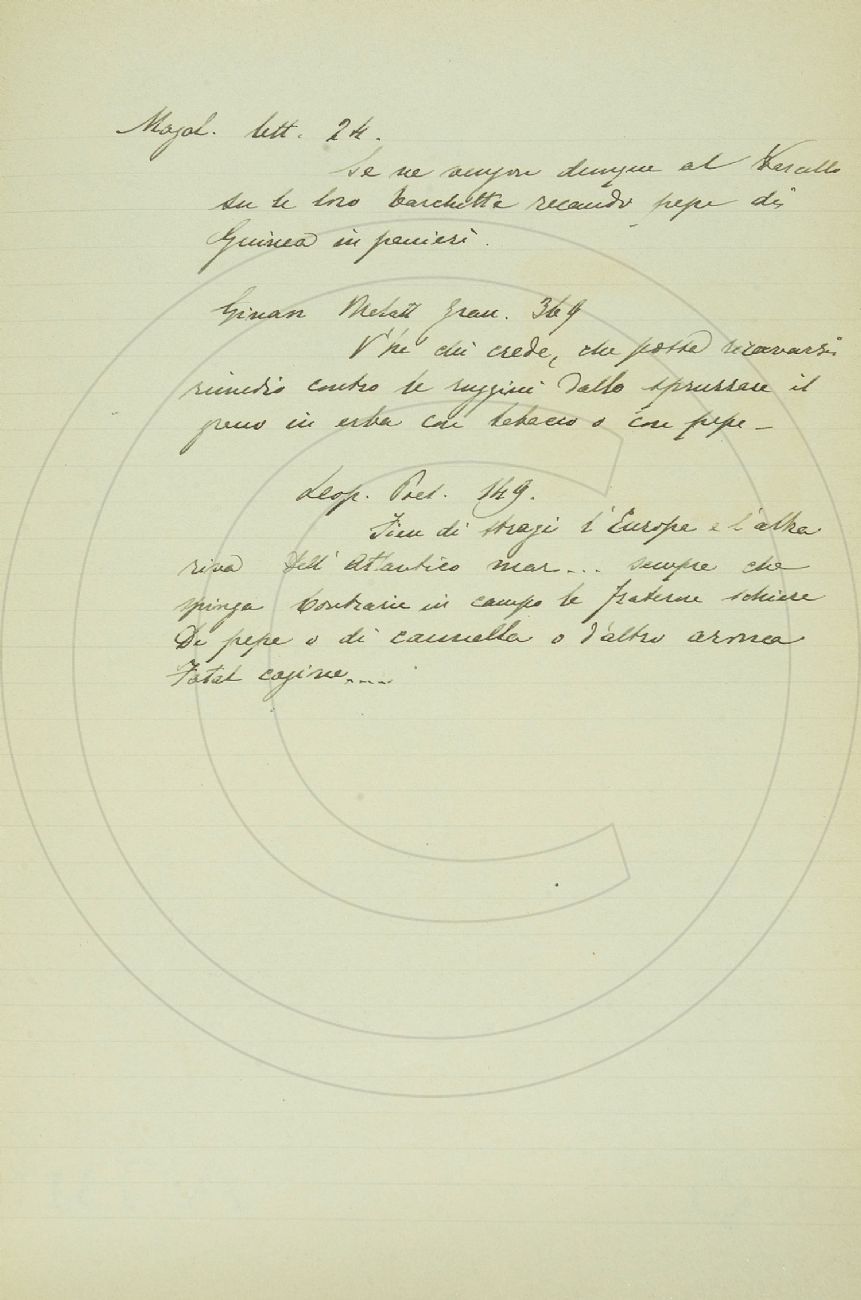 Magal. lett. 24.
Se ne vengon dunque al Vascello
su le loro barchette recando pepe di
Guinea in panieri.
Ginan Malatt gran. 369
V'ha chi crede, che possa ricavarsi
rimedio contro le ruggini dallo spruzzare il
grano in erba con tabacco o con pepe _
Leop. Poes. 149.
Fien di stragi l'Europa e l'altra
riva dell' Atlantico mar... sempre che
spinga Contrarie in campo le fraterne schiere
Di pepe o di cannella o d'altro aroma
Fatal cagione....